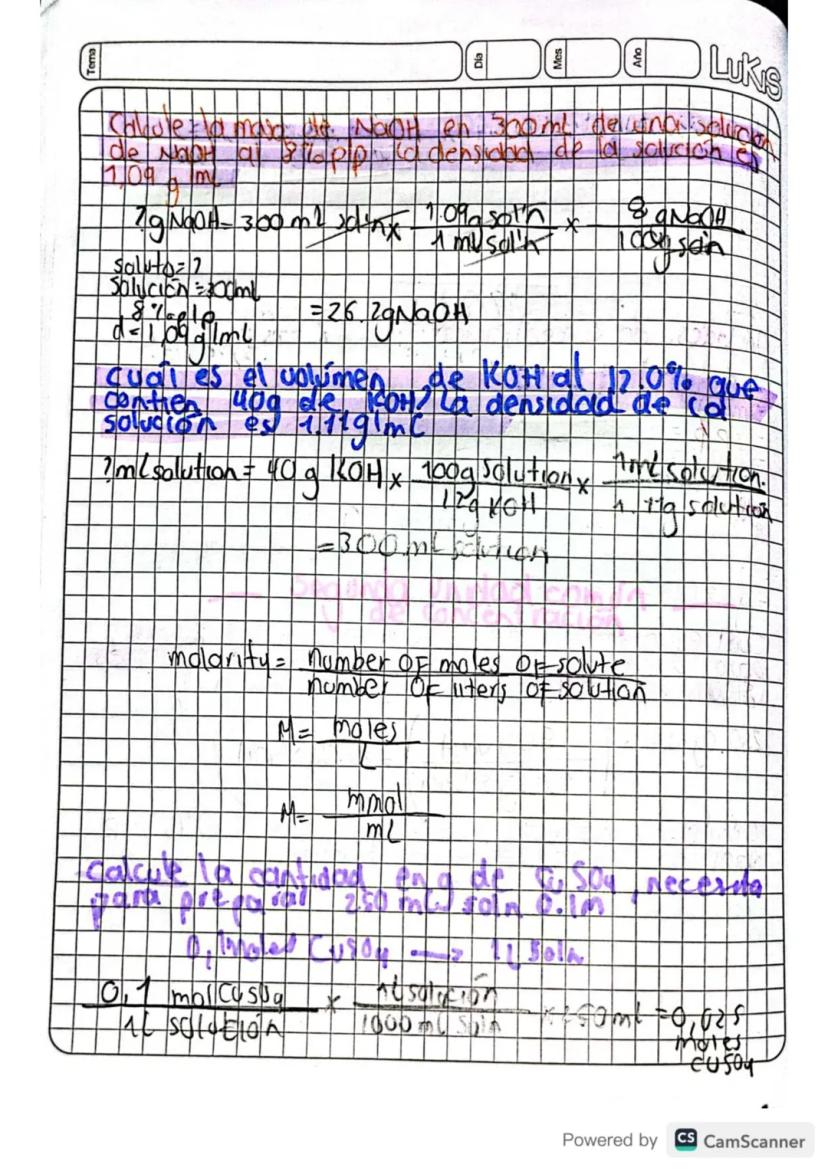 Tema
Día
Mes
Año
LUKIS
Calcule la masa de NaOH en 300 ml de una solución
de NaOH al 8% p/p. la densidad de la solución es
1,09 g/ml
?g NaOH = 300 ml sol'n x 1.09g sol'n / 1 ml sol'n x 8 g NaOH / 100g soln
soluto = ?
solución = 300ml
8% p/p
d = 1,09 g/ml
= 26.2g NaOH
cual es el volumen de KOH al 12.0% que
contien 40g de KOH, la densidad de la
solución es 1.11g/mL
?ml solution = 40 g KOH x 100g solution / 12g KOH x 1ml solution. / 1.11g solution
= 300 ml solution
molarity = number OF moles OF solute / number OF liters OF solution
M = moles / L
M = mmol / mL
Calcule la cantidad en g de CuSO4, necesita
para preparar 250 mL soln 0.1M
0,1moles CuSO4 → 1L soln
0,1 mol CuSO4 / 1L solución x 1L solución / 1000 ml soln x 250 ml = 0,025
moles
CuSO4
Powered by CS CamScanner